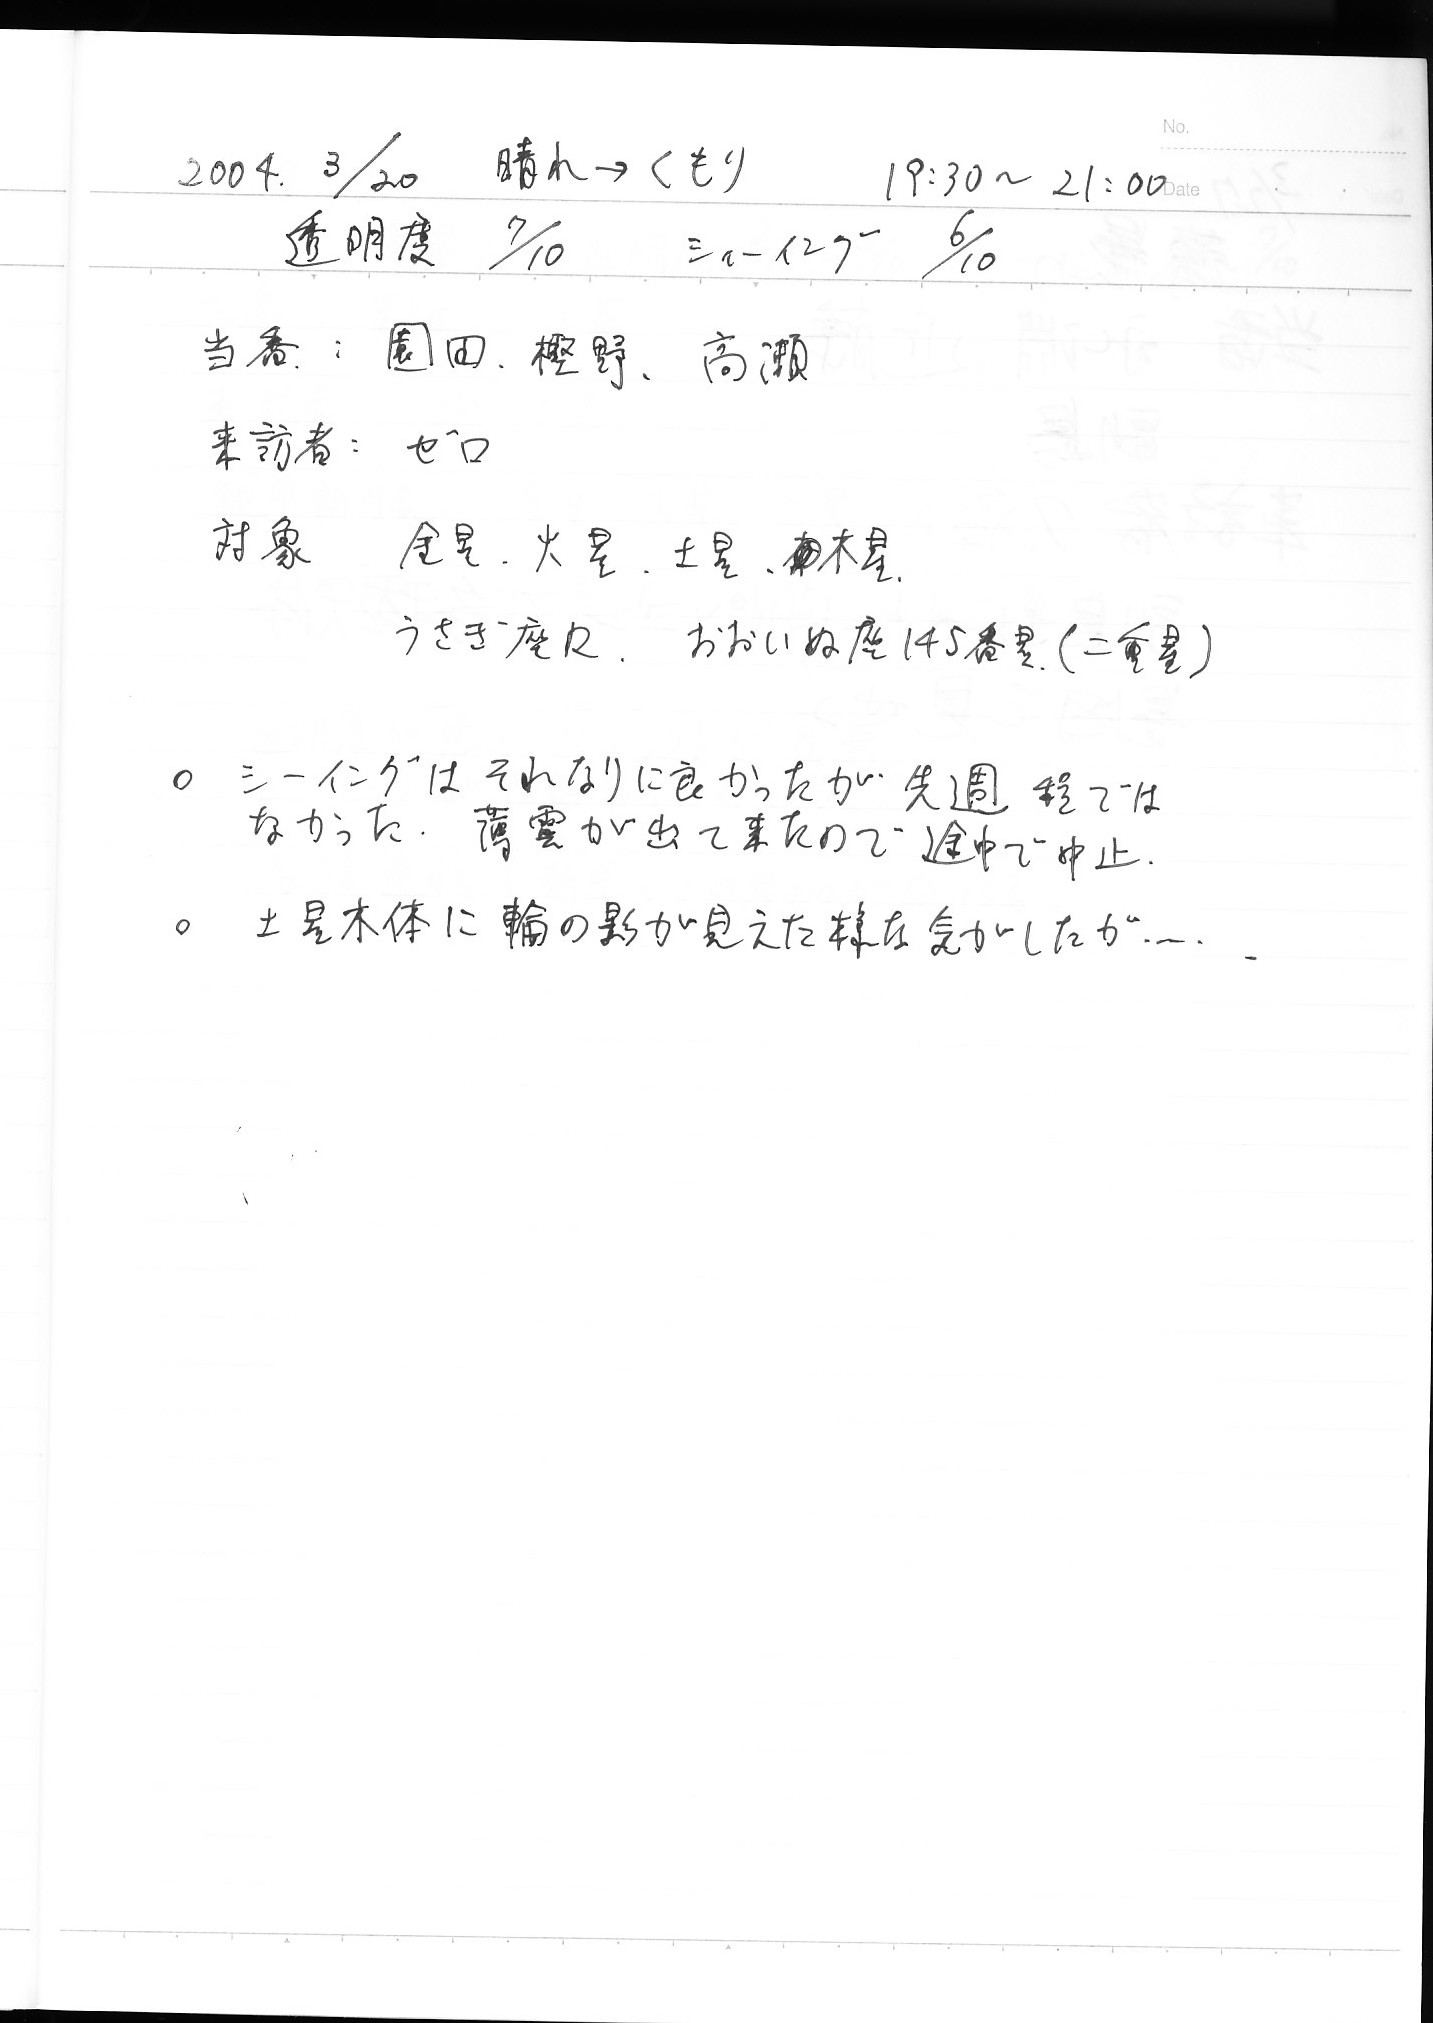 No.
2004. 3/20 晴れ→くもり 19:30〜21:00
Date
透明度 7/10 シーイング 6/10
当番: 園田、樫野、高瀬
来訪者: ゼロ
対象 金星、火星、土星、木星、
うさぎ座R、おおいぬ座145番星(二重星)
○ シーイングはそれなりに良かったが先週程では
なかった。薄雲が出て来たので途中で中止。
○ 土星本体に輪の影が見えた様な気がしたが…。